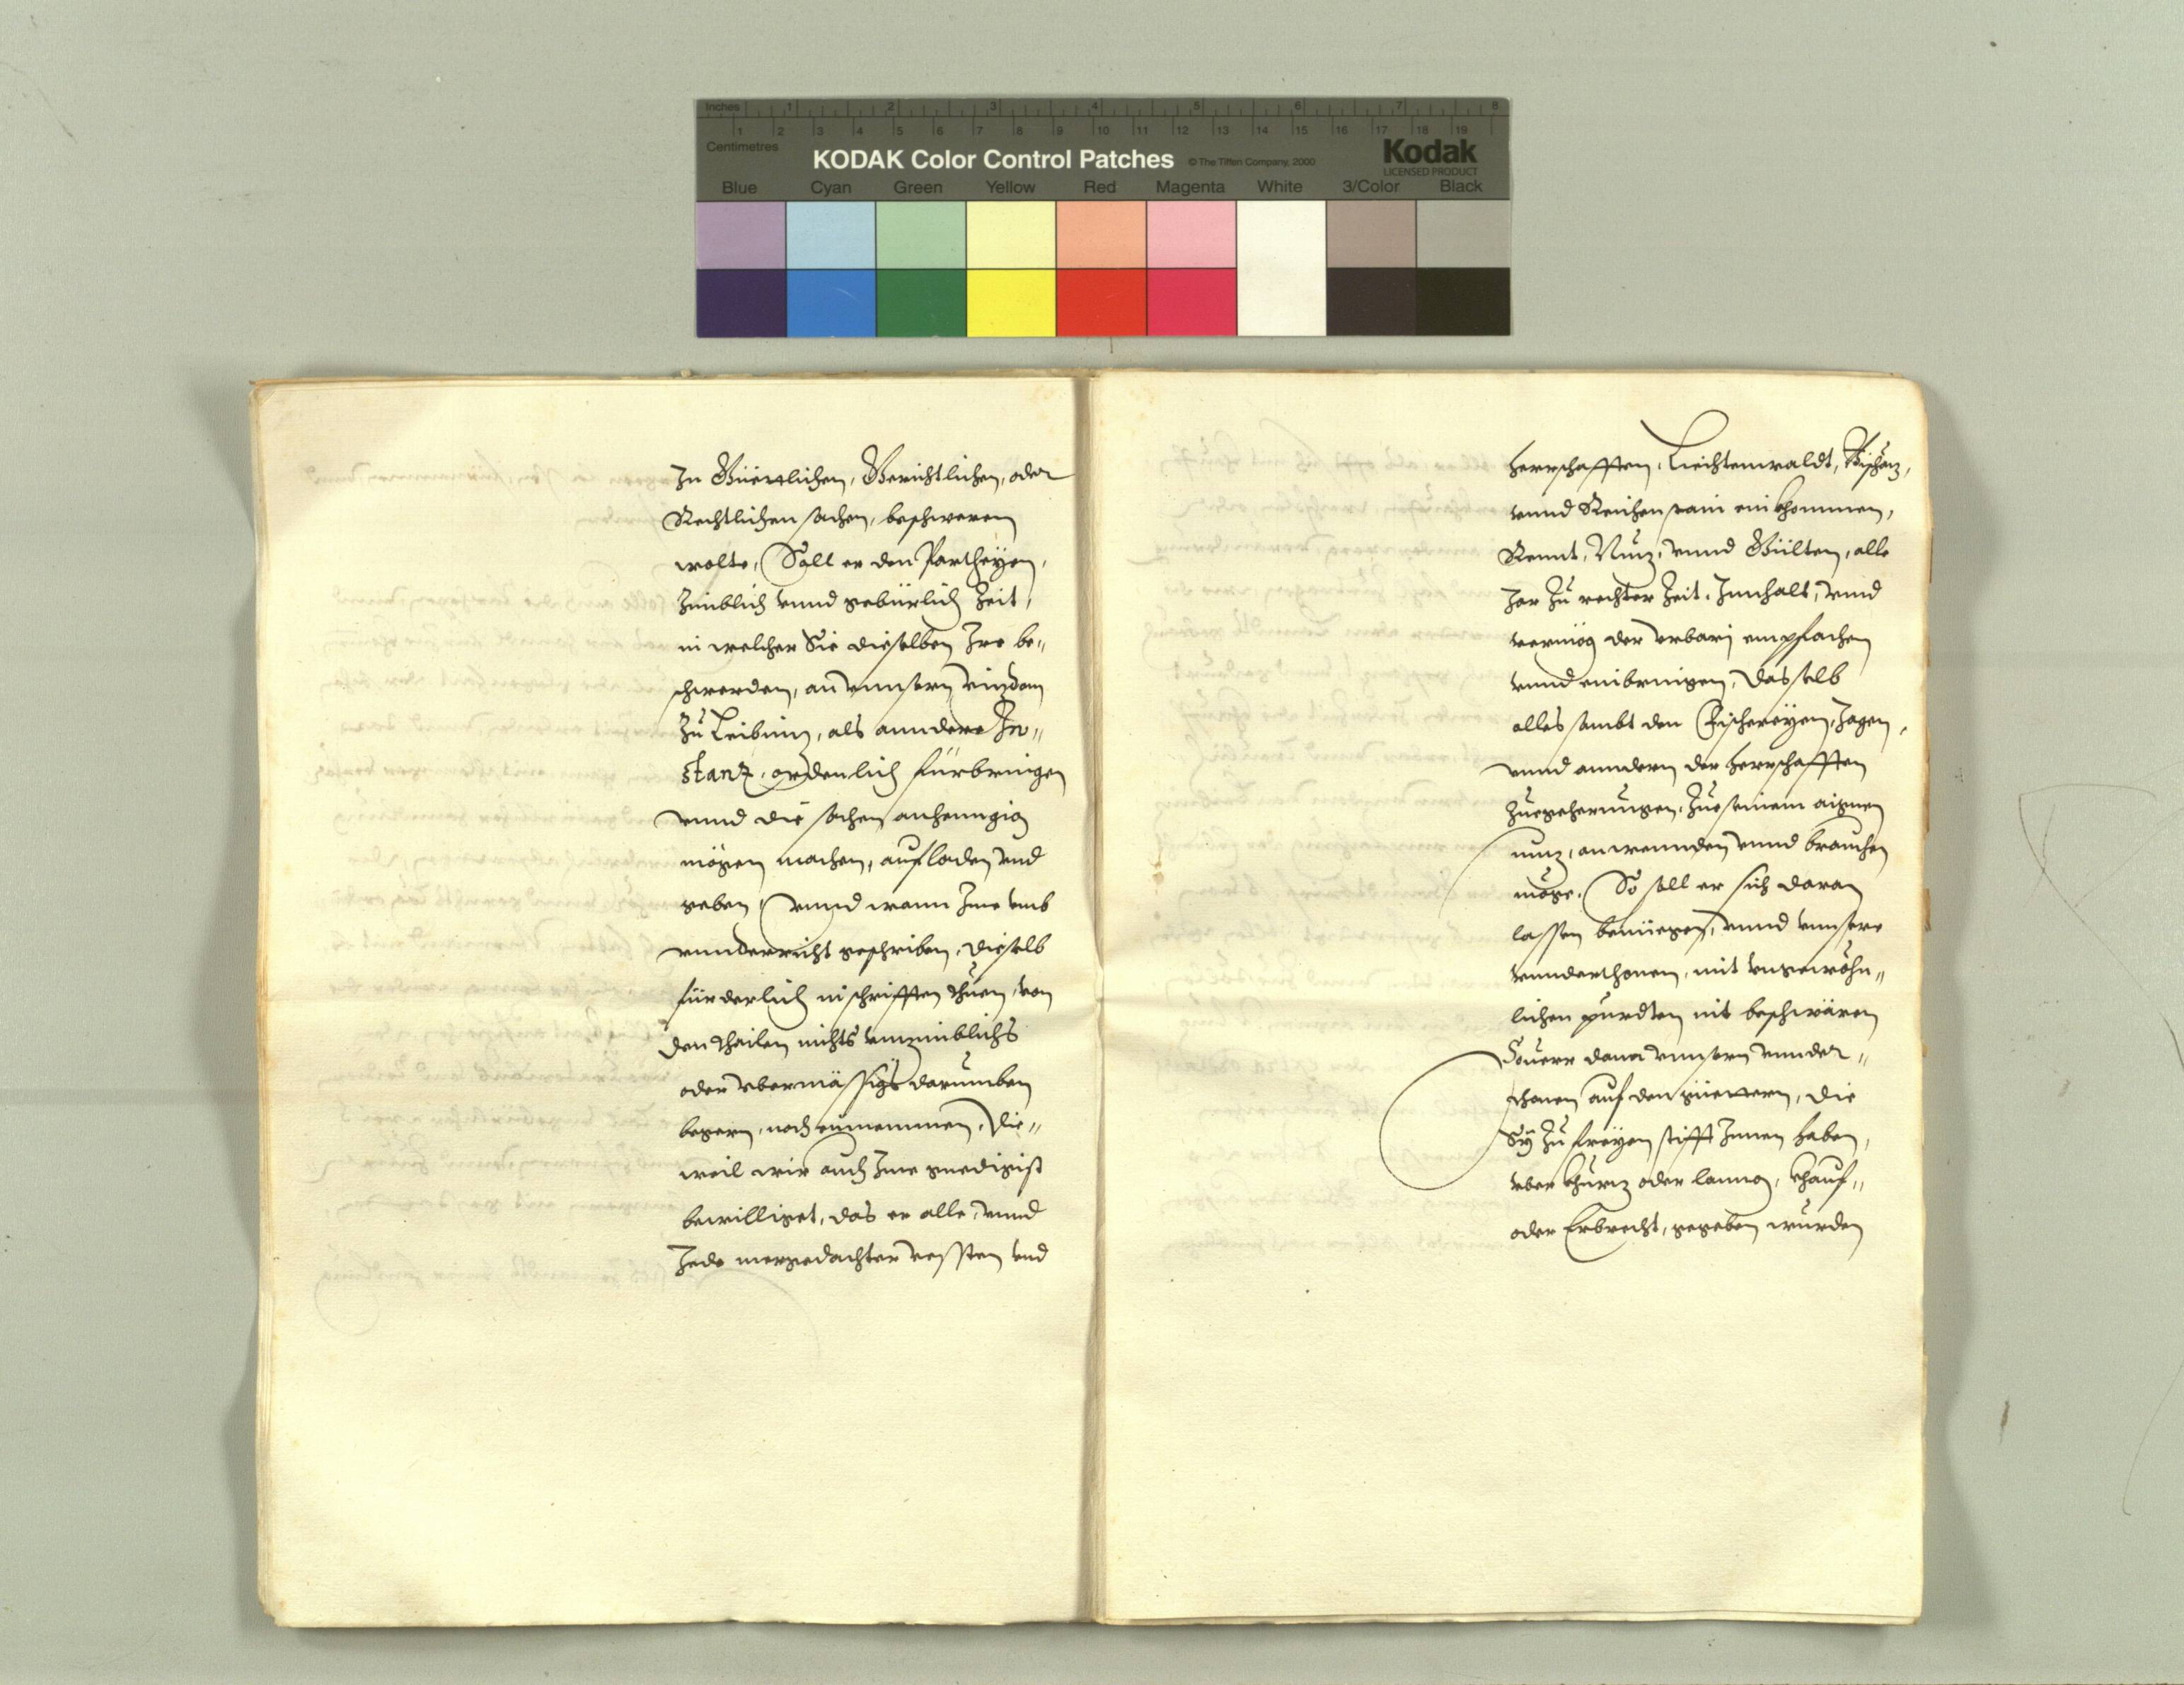 Inches 1 2 3 4 5 6 7 8
1 2 3 4 5 6 7 8 9 10 11 12 13 14 15 16 17 18 19
Centimetres
KODAK Color Control Patches © The Tiffen Company, 2000 Kodak
LICENSED PRODUCT
Blue Cyan Green Yellow Red Magenta White 3/Color Black
In Güettlichen, Gerichtlichen, oder
Rechtlichen sachen, beschweren
wolte, Soll er den Partheyen,
zimblich vnnd gebürlich Zeit,
in welcher Sie dieselben Ire be„
schwerden, an vnnsern vizdom
zu Leibniz, als anndere In„
stanz, ordenlich fürbringen
vnnd die sachen anhenngig
mögen machen, auf laden vnd
geben, vnnd wann Ime vmb
vnnderricht geschriben, dieselb
fürderlich in schrifften thuen, von
den thailen nichts vnzimblichs
oder vbermässigs darumben
begern, noch einnemmen, Die„
weil wir auch Ime gnedigist
bewilliget, das er alle, vnnd
Jede mergedachter vessten vnd
herrschafften, Liechtenwaldt,
vnnd Reichenstain einkhommen,
Rennt, Nuz, vnnd Gülten, alle
Jar zu rechter Zeit, Innhalt, vnnd
vermög der vrbarj empfachen
vnnd einbringen, Dasselb
alles sambt den Fischereyen, Jagen,
vnnd anndern der herrschafften
zuegeherungen, zue seinem aignen
nuz, anwennden vnnd brauchen
möge, So soll er sich daran
lassen benüegen, vnnd vnnsere
vnnderthonen, mit vngewöhn„
lichen purdten nit beschwären
Souerr dann vnnsern vnnder„
thonen auf den güettern, die
Sy zu freyen stifft Innen haben,
vber khurz oder lanng, khauf„
oder Erbrecht, gegeben wurden